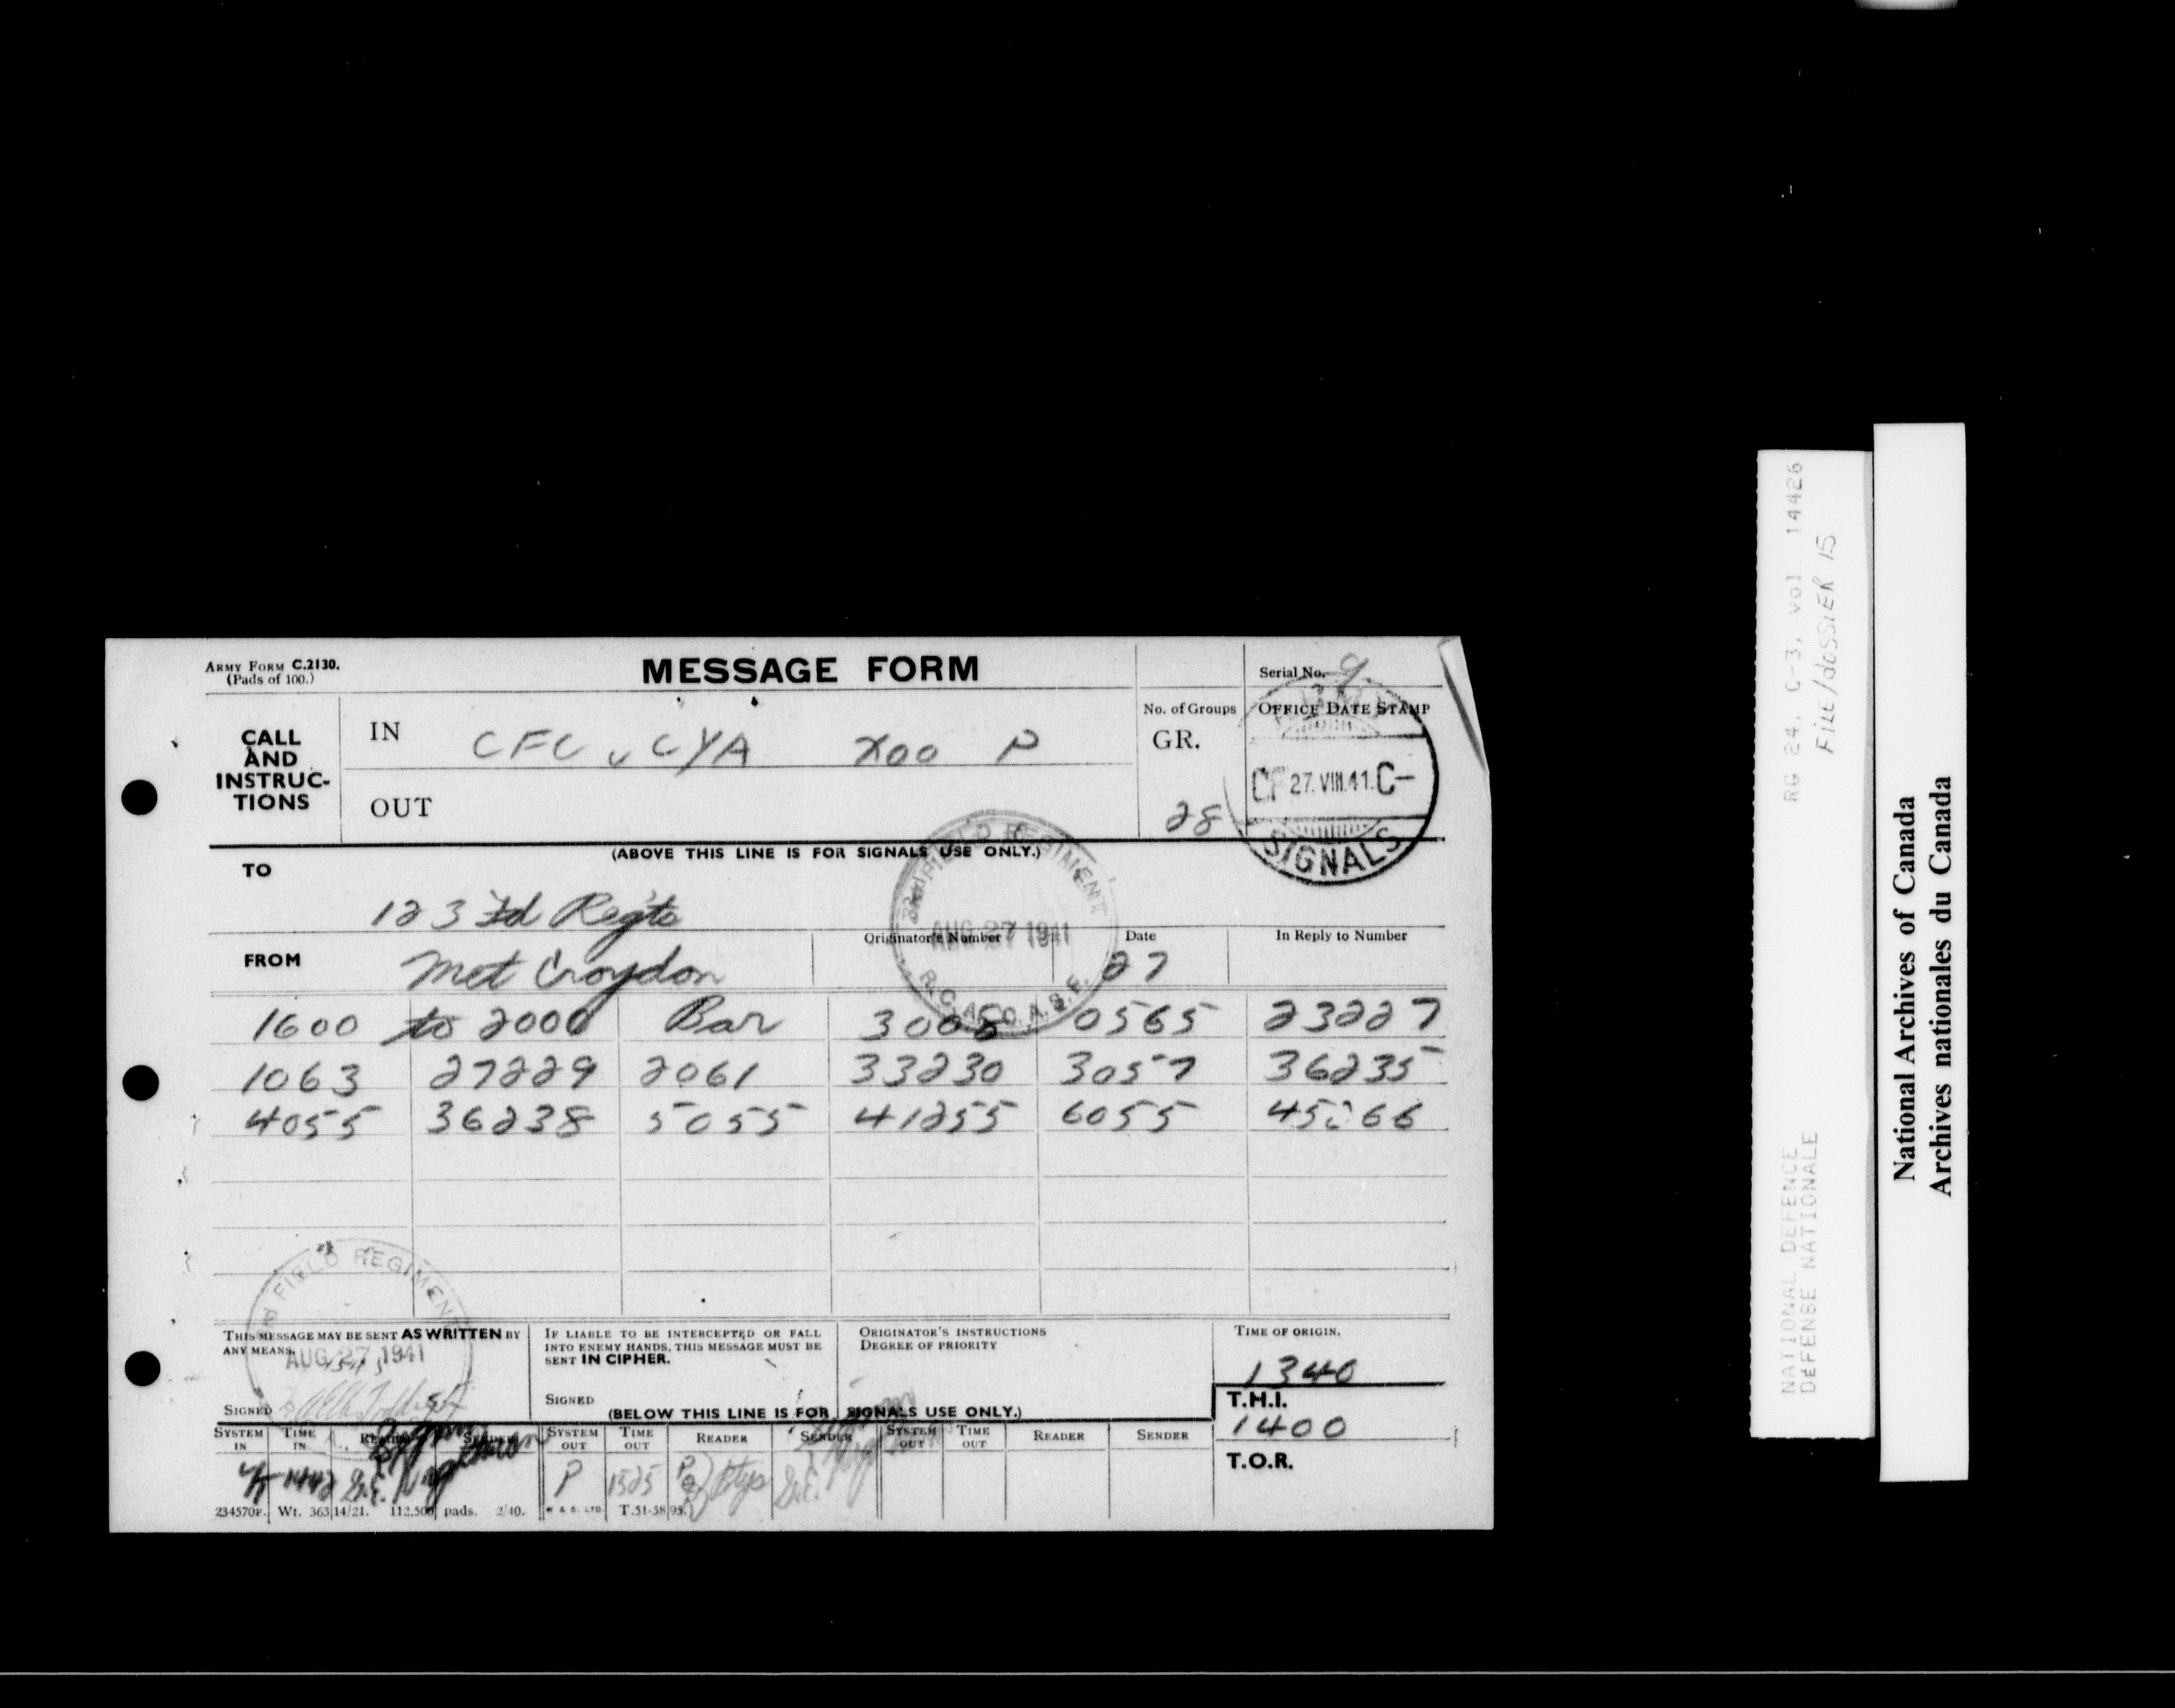 ARMY FORM C.2130.
(Pads of 100.)
MESSAGE FORM
Serial No. 9
CALL AND INSTRUC- TIONS
IN CFC v CYA X00 P
OUT
No. of Groups
GR.
28
OFFICE DATE STAMP
CF 27.VIII.41.C-
SIGNALS
(ABOVE THIS LINE IS FOR SIGNALS USE ONLY.)
TO
123 Fd Regts
FIELD REGIMENT
AUG 27 1941
R.C.A. C.A.S.F.
FROM Met Croydon
Originator's Number
Date
27
In Reply to Number
1600 to 2000 Bar 3008 0565 23227
1063 27229 2061 33230 3057 36235
4055 36238 5055 41255 6055 45266
FIELD REGIMENT
AUG 27 1941
THIS MESSAGE MAY BE SENT AS WRITTEN BY
ANY MEANS.
SIGNED
IF LIABLE TO BE INTERCEPTED OR FALL
INTO ENEMY HANDS, THIS MESSAGE MUST BE
SENT IN CIPHER.
SIGNED
ORIGINATOR'S INSTRUCTIONS
DEGREE OF PRIORITY
TIME OF ORIGIN.
1340
T.H.I.
1400
T.O.R.
(BELOW THIS LINE IS FOR SIGNALS USE ONLY.)
SYSTEM IN TIME IN READER SENDER SYSTEM OUT TIME OUT READER SENDER SYSTEM OUT TIME OUT READER SENDER
1442 P 1525
234570F. Wt. 363/14/21. 112,500 pads. 2/40. W & S. LTD. T.51-5895.
RG 24, C-3, vol. 14426
FILE/DOSSIER 15
NATIONAL DEFENCE
DEFENSE NATIONALE
National Archives of Canada
Archives nationales du Canada